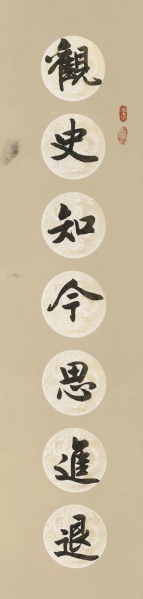 觀史知今思進退